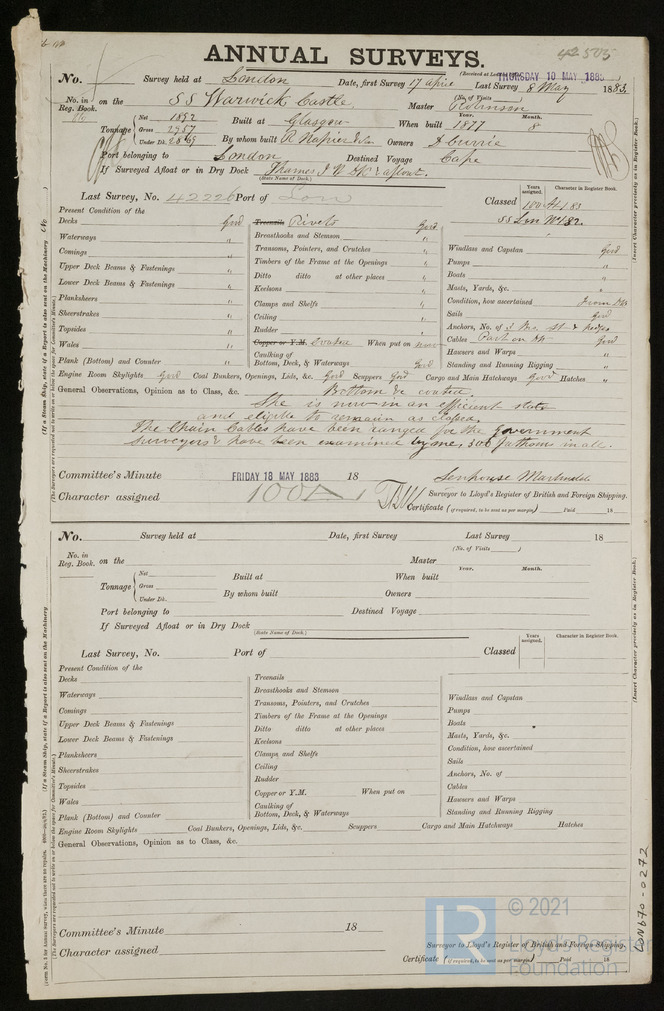 42505
ANNUAL SURVEYS.
(Received at London THURSDAY 10 MAY 1883)
No. Survey held at London Date, first Survey 17 april Last Survey 8 May 1883.
(No. of Visits )
No. in Reg. Book. on the SS Warwick Castle Master Robinson
Tonnage Net 1892 Gross 2957 Under Dk. Built at Glasgow When built Year. 1877 Month. 8
By whom built R Napier & Son Owners D Currie
Port belonging to London Destined Voyage Cape
If Surveyed Afloat or in Dry Dock Thames I W DK & afloat.
(State Name of Dock.)
Last Survey, No. 42226 Port of Lon Classed Years assigned. Character in Register Book. 100 A1 83
SS Lon No1 82.
Present Condition of the
Decks Good
Waterways "
Comings "
Upper Deck Beams & Fastenings "
Lower Deck Beams & Fastenings "
Planksheers "
Sheerstrakes "
Topsides "
Wales "
Plank (Bottom) and Counter "
Treenails Rivets Good
Breasthooks and Stemson "
Transoms, Pointers, and Crutches "
Timbers of the Frame at the Openings "
Ditto ditto at other places "
Keelsons "
Clamps and Shelfs "
Ceiling "
Rudder "
Copper or Y.M. coated When put on now
Caulking of Bottom, Deck, & Waterways Good
Windlass and Capstan Good
Pumps "
Boats "
Masts, Yards, &c. "
Condition, how ascertained From Dk
Sails Good
Anchors, No. of 3 Bo. St & kedges
Cables Part on Dk Good
Hawsers and Warps "
Standing and Running Rigging "
Engine Room Skylights Good Coal Bunkers, Openings, Lids, &c. Good Scuppers Good Cargo and Main Hatchways Good Hatches "
General Observations, Opinion as to Class, &c. Bottom & coated.
She is now in an efficient state
and eligible to remain as classed.
The Chain Cables have been ranged for the Government
Surveyors & have been examined by me, 300 fathoms in all.
Committee's Minute FRIDAY 18 MAY 1883 18
Character assigned 100 A 1
Senhouse Martindale
Surveyor to Lloyd's Register of British and Foreign Shipping.
Certificate (if required, to be sent as per margin) Paid 18
No. Survey held at Date, first Survey Last Survey 18
(No. of Visits )
No. in Reg. Book. on the Master
Tonnage Net Gross Under Dk. Built at When built Year. Month.
By whom built Owners
Port belonging to Destined Voyage
If Surveyed Afloat or in Dry Dock
(State Name of Dock.)
Last Survey, No. Port of Classed Years assigned. Character in Register Book.
Present Condition of the
Decks
Waterways
Comings
Upper Deck Beams & Fastenings
Lower Deck Beams & Fastenings
Planksheers
Sheerstrakes
Topsides
Wales
Plank (Bottom) and Counter
Treenails
Breasthooks and Stemson
Transoms, Pointers, and Crutches
Timbers of the Frame at the Openings
Ditto ditto at other places
Keelsons
Clamps and Shelfs
Ceiling
Rudder
Copper or Y.M. When put on
Caulking of
Bottom, Deck, & Waterways
Windlass and Capstan
Pumps
Boats
Masts, Yards, &c.
Condition, how ascertained
Sails
Anchors, No. of
Cables
Hawsers and Warps
Standing and Running Rigging
Engine Room Skylights Coal Bunkers, Openings, Lids, &c. Scuppers Cargo and Main Hatchways Hatches
General Observations, Opinion as to Class, &c.
Committee's Minute 18
Character assigned
Surveyor to Lloyd's Register of British and Foreign Shipping.
Certificate (if required, to be sent as per margin) Paid 18
(Insert Character precisely as in Register Book.)
(Insert Character precisely as in Register Book.)
(If a Steam Ship, state if a Report is also sent on the Machinery No
(The Surveyors are requested not to write on or below the space for Committee's Minute.)
(If a Steam Ship, state if a Report is also sent on the Machinery
(The Surveyors are requested not to write on or below the space for Committee's Minute.)
LON670-0272
© 2021
Lloyd's Register
Foundation